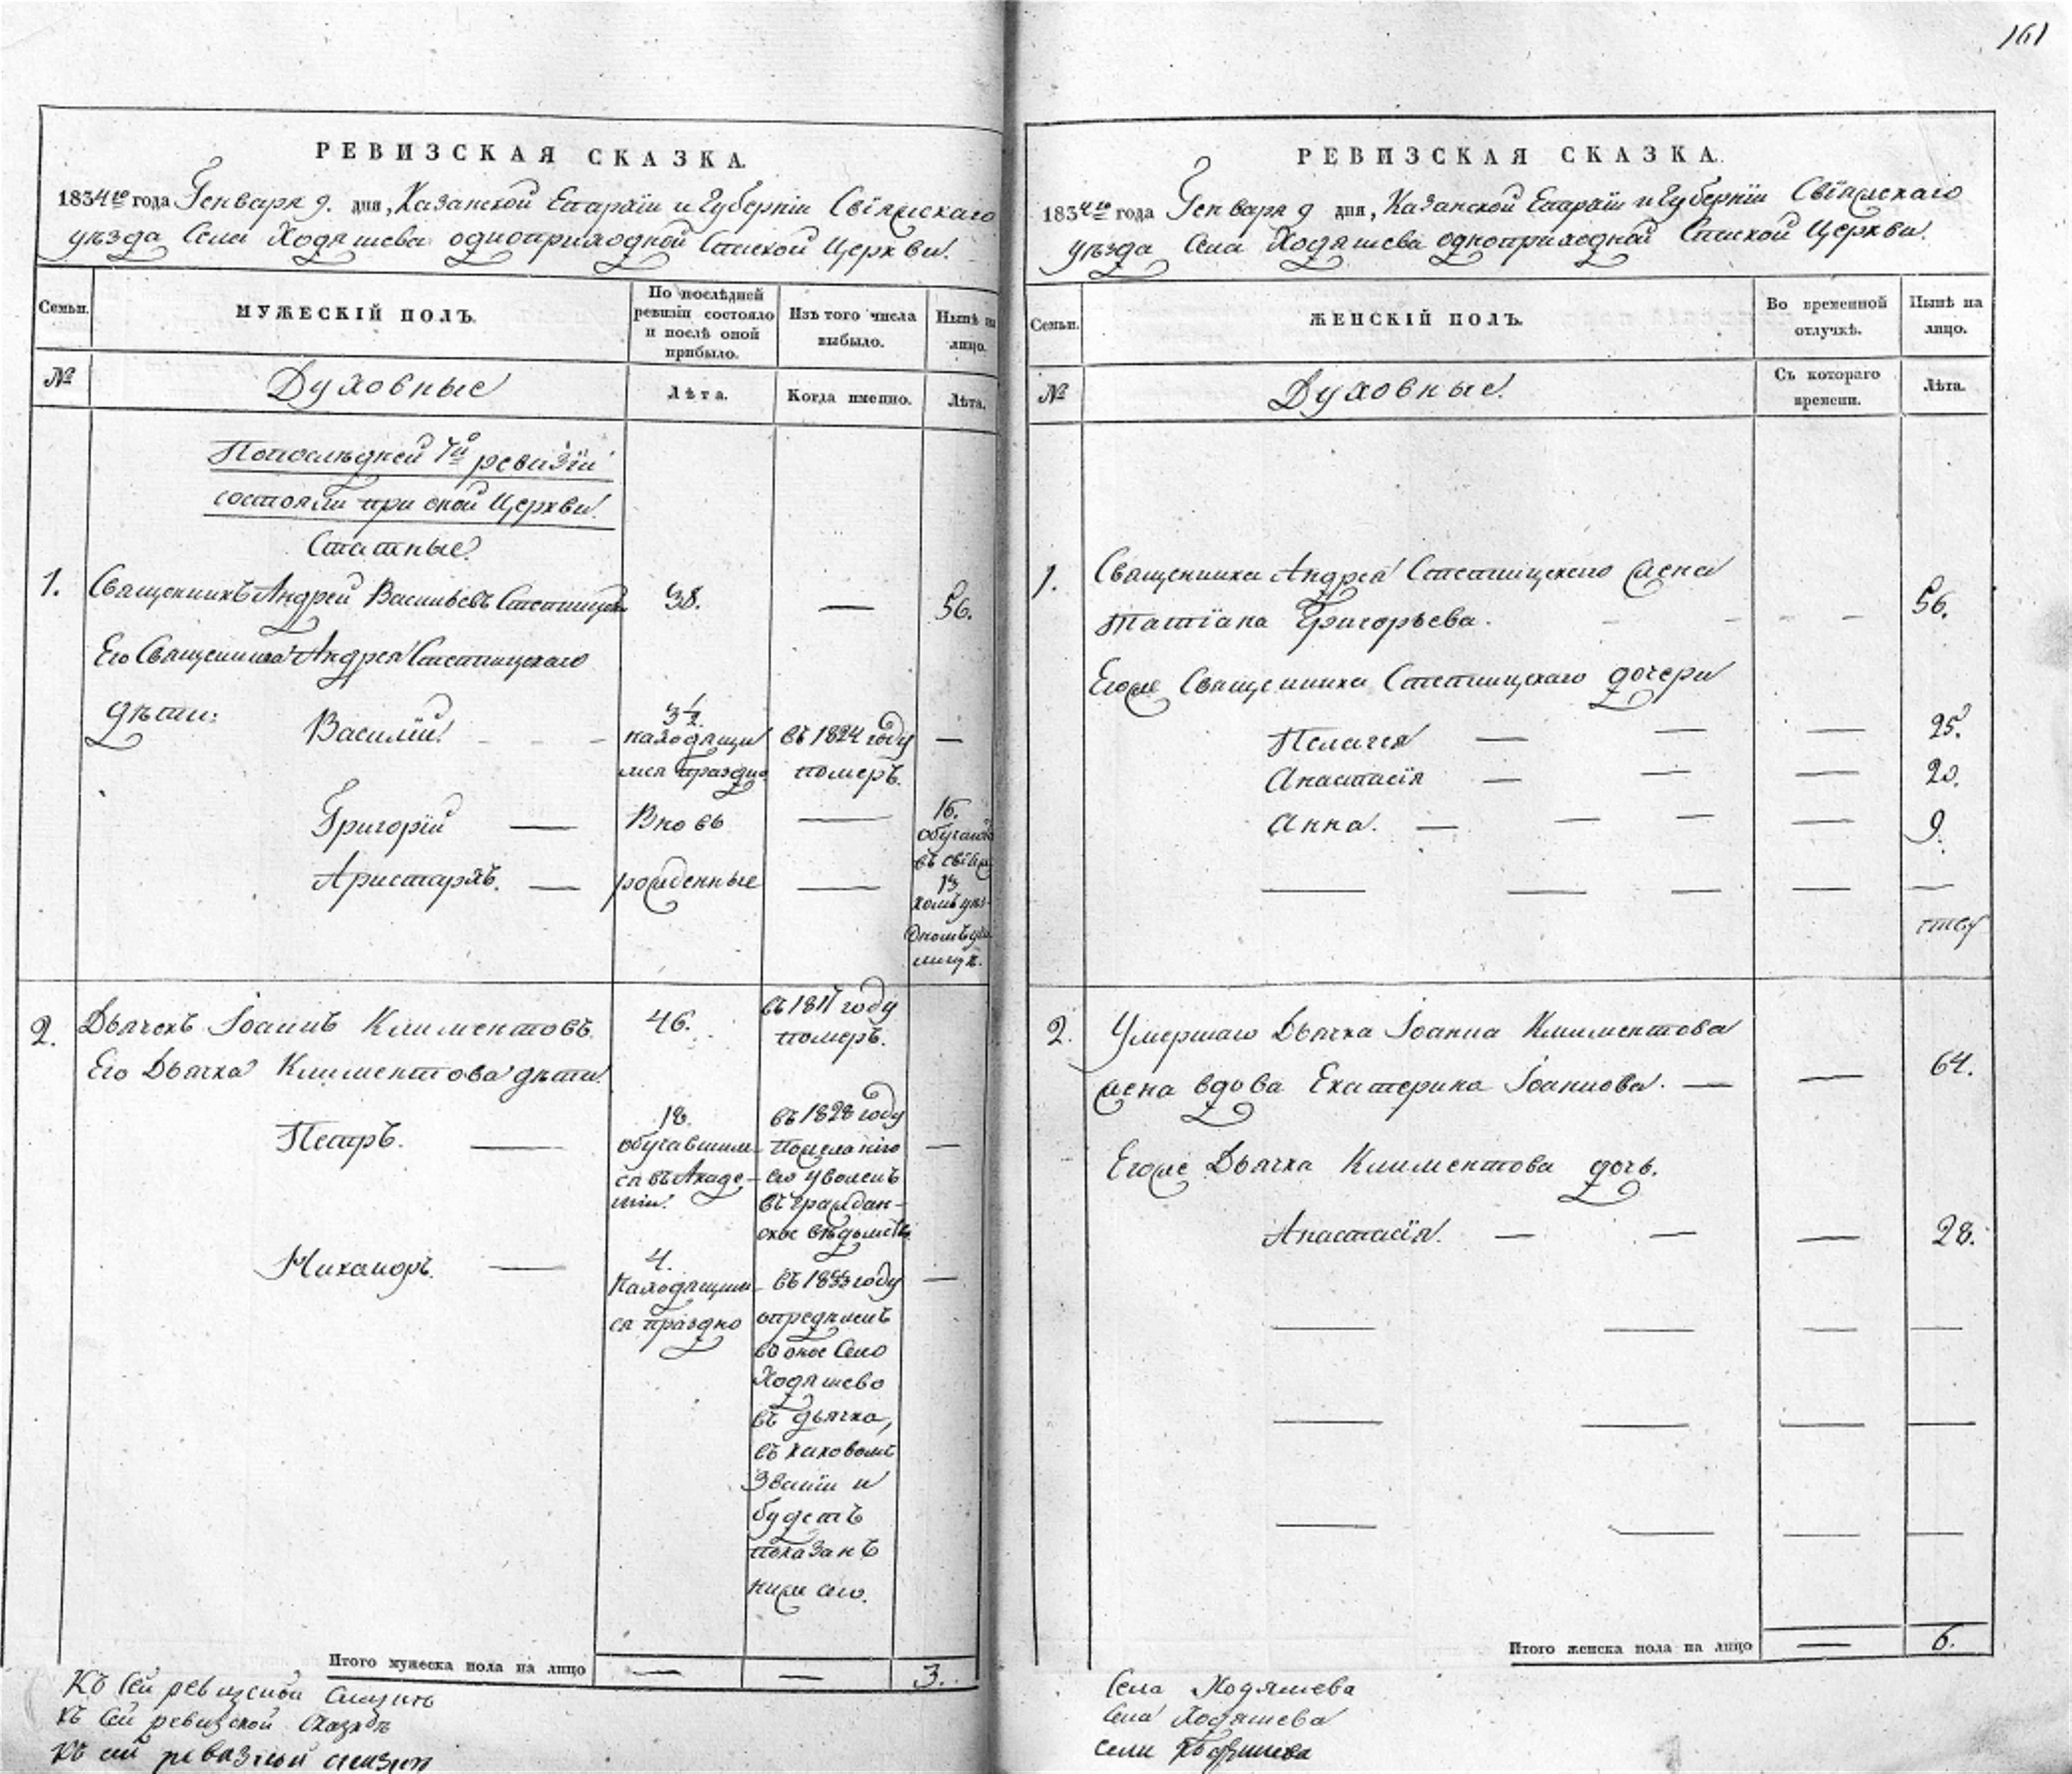 161
РЕВИЗСКАЯ СКАЗКА.
1834го года Генваря 9. дня, Казанской Епархіи и Губерніи Свіяжскаго
уѣзда Села Ходяшева одноприходной Спаской Церкви.
Семьи.
МУЖЕСКІЙ ПОЛЪ.
По послѣдней ревизіи состояло и послѣ оной прибыло.
Изъ того числа выбыло.
Нынѣ на лицо.
№
Духовные
Лѣта.
Когда именно.
Лѣта.
По послѣдней 7й ревизіи
состояли при оной Церкви.
Статные.
1. Священникъ Андрей Васильевъ 38. — 56.
Его Священника Андрея
дѣти:
Василій 3½ находящийся праздно въ 1824 году померъ. —
Григорій — Вновь — 16.
Аристархъ. — рожденные — 13
обучаются въ Свіяжскомъ уѣздномъ училищѣ.
2. Дьячекъ Іоаннъ Климентовъ 46. въ году померъ.
Его Дьячка Климентова дѣти
Петръ. — 18. —
обучавшимся въ Академіи.
въ 1828 году
по желанію
его уволенъ
въ граждан-
ское вѣдомство
Никаноръ. — 4. —
Находящимся праздно
въ 1833 году
опредѣленъ
во оное Село
Ходяшево
въ дьячка,
въ каковомъ
званіи и
будетъ
показанъ
ниже сего.
Итого мужеска пола на лицо — — 3.
Къ сей ревизской сказкѣ
къ сей ревизской сказкѣ
къ сей ревизской сказкѣ
РЕВИЗСКАЯ СКАЗКА.
1834го года Генваря 9 дня, Казанской Епархіи и Губерніи Свіяжскаго
уѣзда Села Ходяшева одноприходной Спаской Церкви.
Семьи.
ЖЕНСКІЙ ПОЛЪ.
Во временной отлучкѣ.
Нынѣ на лицо.
№
Духовные.
Съ котораго времени.
Лѣта.
1. Священника Андрея жена
Татіана Григорьева. — — 56.
Егоже Священника дочери
Пелагея — — — 25.
Анастасія — — — 20.
Анна. — — — — 9.
— — — — —
2. Умершаго Дьячка Іоанна Климентова
жена вдова Екатерина Іоаннова. — — 64.
Егоже Дьячка Климентова дочь.
Анастасія. — — — 28.
— — — —
— — — —
— — — —
Итого женска пола на лицо — 6.
Села Ходяшева
Села Ходяшева
села Ходяшева